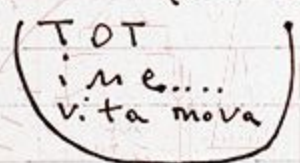 TOT
i me....
vita mova